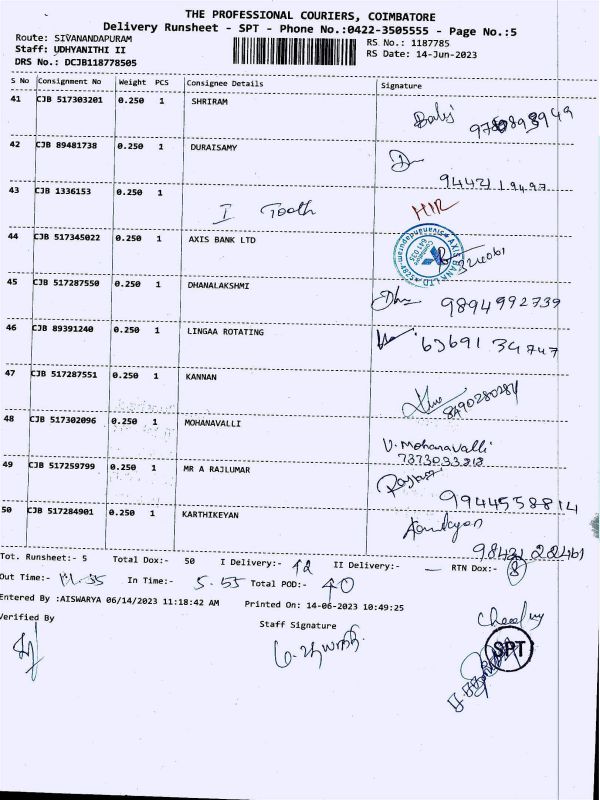 THE PROFESSIONAL COURIERS, COIMBATORE
Delivery Runsheet - SPT - Phone No.:0422-3505555 - Page No.:5
Route: SIVANANDAPURAM
Staff: UDHYANITHI II
DRS No.: DCJB118778505
RS No.: 1187785
RS Date: 14-Jun-2023
S No Consignment No Weight PCS Consignee Details Signature
41 CJB 517303201 0.250 1 SHRIRAM
42 CJB 89481738 0.250 1 DURAISAMY
43 CJB 1336153 0.250 1
I Tooth
44 CJB 517345022 0.250 1 AXIS BANK LTD
45 CJB 517287550 0.250 1 DHANALAKSHMI
9894992739
46 CJB 89391240 0.250 1 LINGAA ROTATING
63691 34747
47 CJB 517287551 0.250 1 KANNAN
8490280284
48 CJB 517302096 0.250 1 MOHANAVALLI
V. Mohanavalli
7373093213
49 CJB 517259799 0.250 1 MR A RAJLUMAR
9944558814
50 CJB 517284901 0.250 1 KARTHIKEYAN
98421 22461
Tot. Runsheet:- 5 Total Dox:- 50 I Delivery:- 42 II Delivery:- — RTN Dox:- 8
Out Time:- 11.35 In Time:- 5.55 Total POD:- 40
Entered By :AISWARYA 06/14/2023 11:18:42 AM Printed On: 14-06-2023 10:49:25
Verified By
Staff Signature
SPT